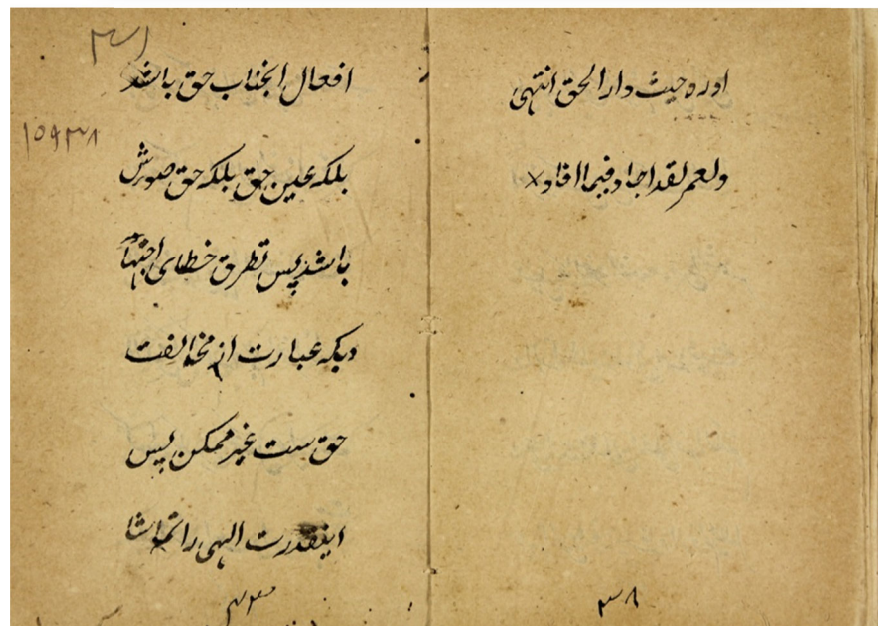 اوره حیث دار الحق انتهی
ولعمر لقد اجاد فیما افاد ×
۳۸
افعال انجناب حق باشد
۱۵۹۳۸
بلکه عین حق بلکه حق صورش
باشد پس تطرق خطای اجتها
دیکه عبارت از مخالفت
حق ست غیر ممکن پس
اینقدرت الهی را تماشا